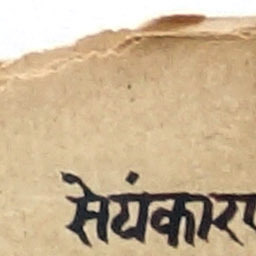 सेयंकारण